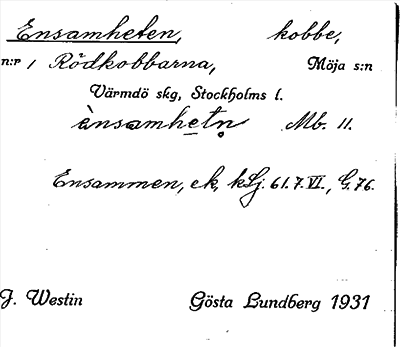 Ensamheten, kobbe,
n:r 1 Rödkobbarna, Möja s:n
Värmdö skg, Stockholms l.
ènsamhetn Mb. 11.
Ensammen, ek, kLj. 61.7.VI., G. 76.
J. Westin Gösta Lundberg 1931